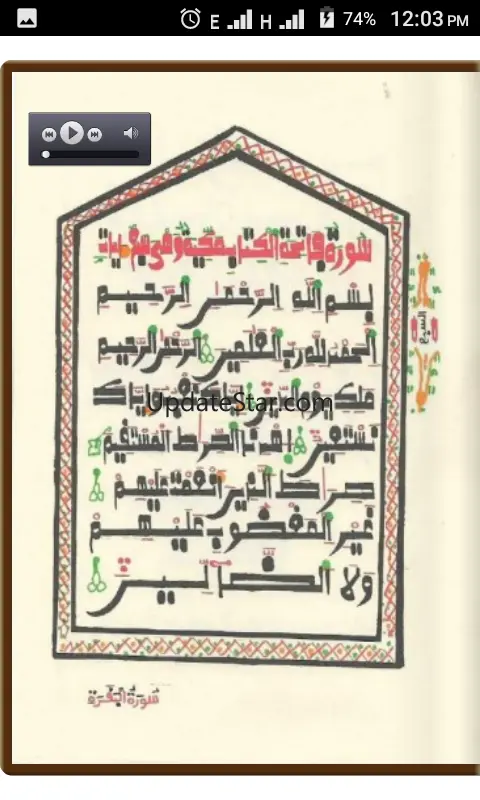 E H 74% 12:03 PM
سورة فاتحة الكتاب مكية وهي سبع آيات
بسم الله الرحمن الرحيم
الحمد لله رب العلمين الرحمن الرحيم
السبع
ملك يوم الدين إياك نعبد وإياك
UpdateStar.com
نستعين اهدنا الصرط المستقيم
صرط الذين أنعمت عليهم
غير المغضوب عليهم
ولا الضالين
سورة البقرة